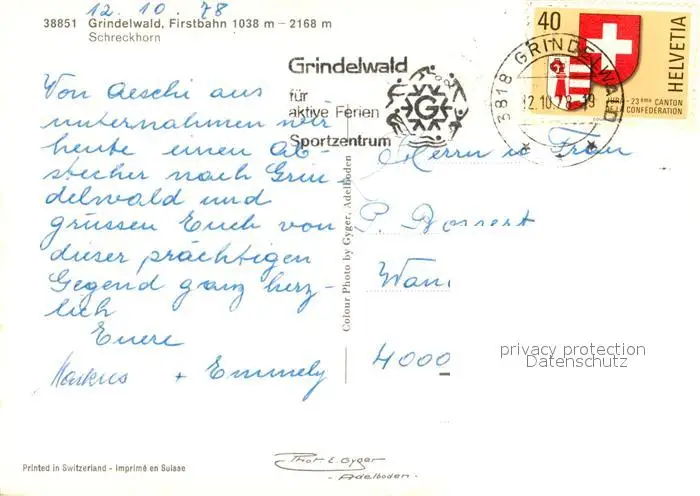 12. 10. 78
38851 Grindelwald, Firstbahn 1038 m – 2168 m
Schreckhorn
Von Aeschi aus
unternahmen wir
heute einen Ab-
stecher nach Grin-
delwald und
grüssen Euch von
dieser prächtigen
Gegend ganz herz-
lich
Euere
Markus + Emmely
Grindelwald
für
aktive Ferien
Sportzentrum
G
3818 GRINDELWALD
12.10.78-19
40
HELVETIA
JURA - 23ème CANTON
DE LA CONFÉDÉRATION
Herrn u Frau
P. Bossert
4000
privacy protection
Datenschutz
Colour Photo by Gyger, Adelboden
Phot E. Gyger
- Adelboden -
Printed in Switzerland - Imprimé en Suisse